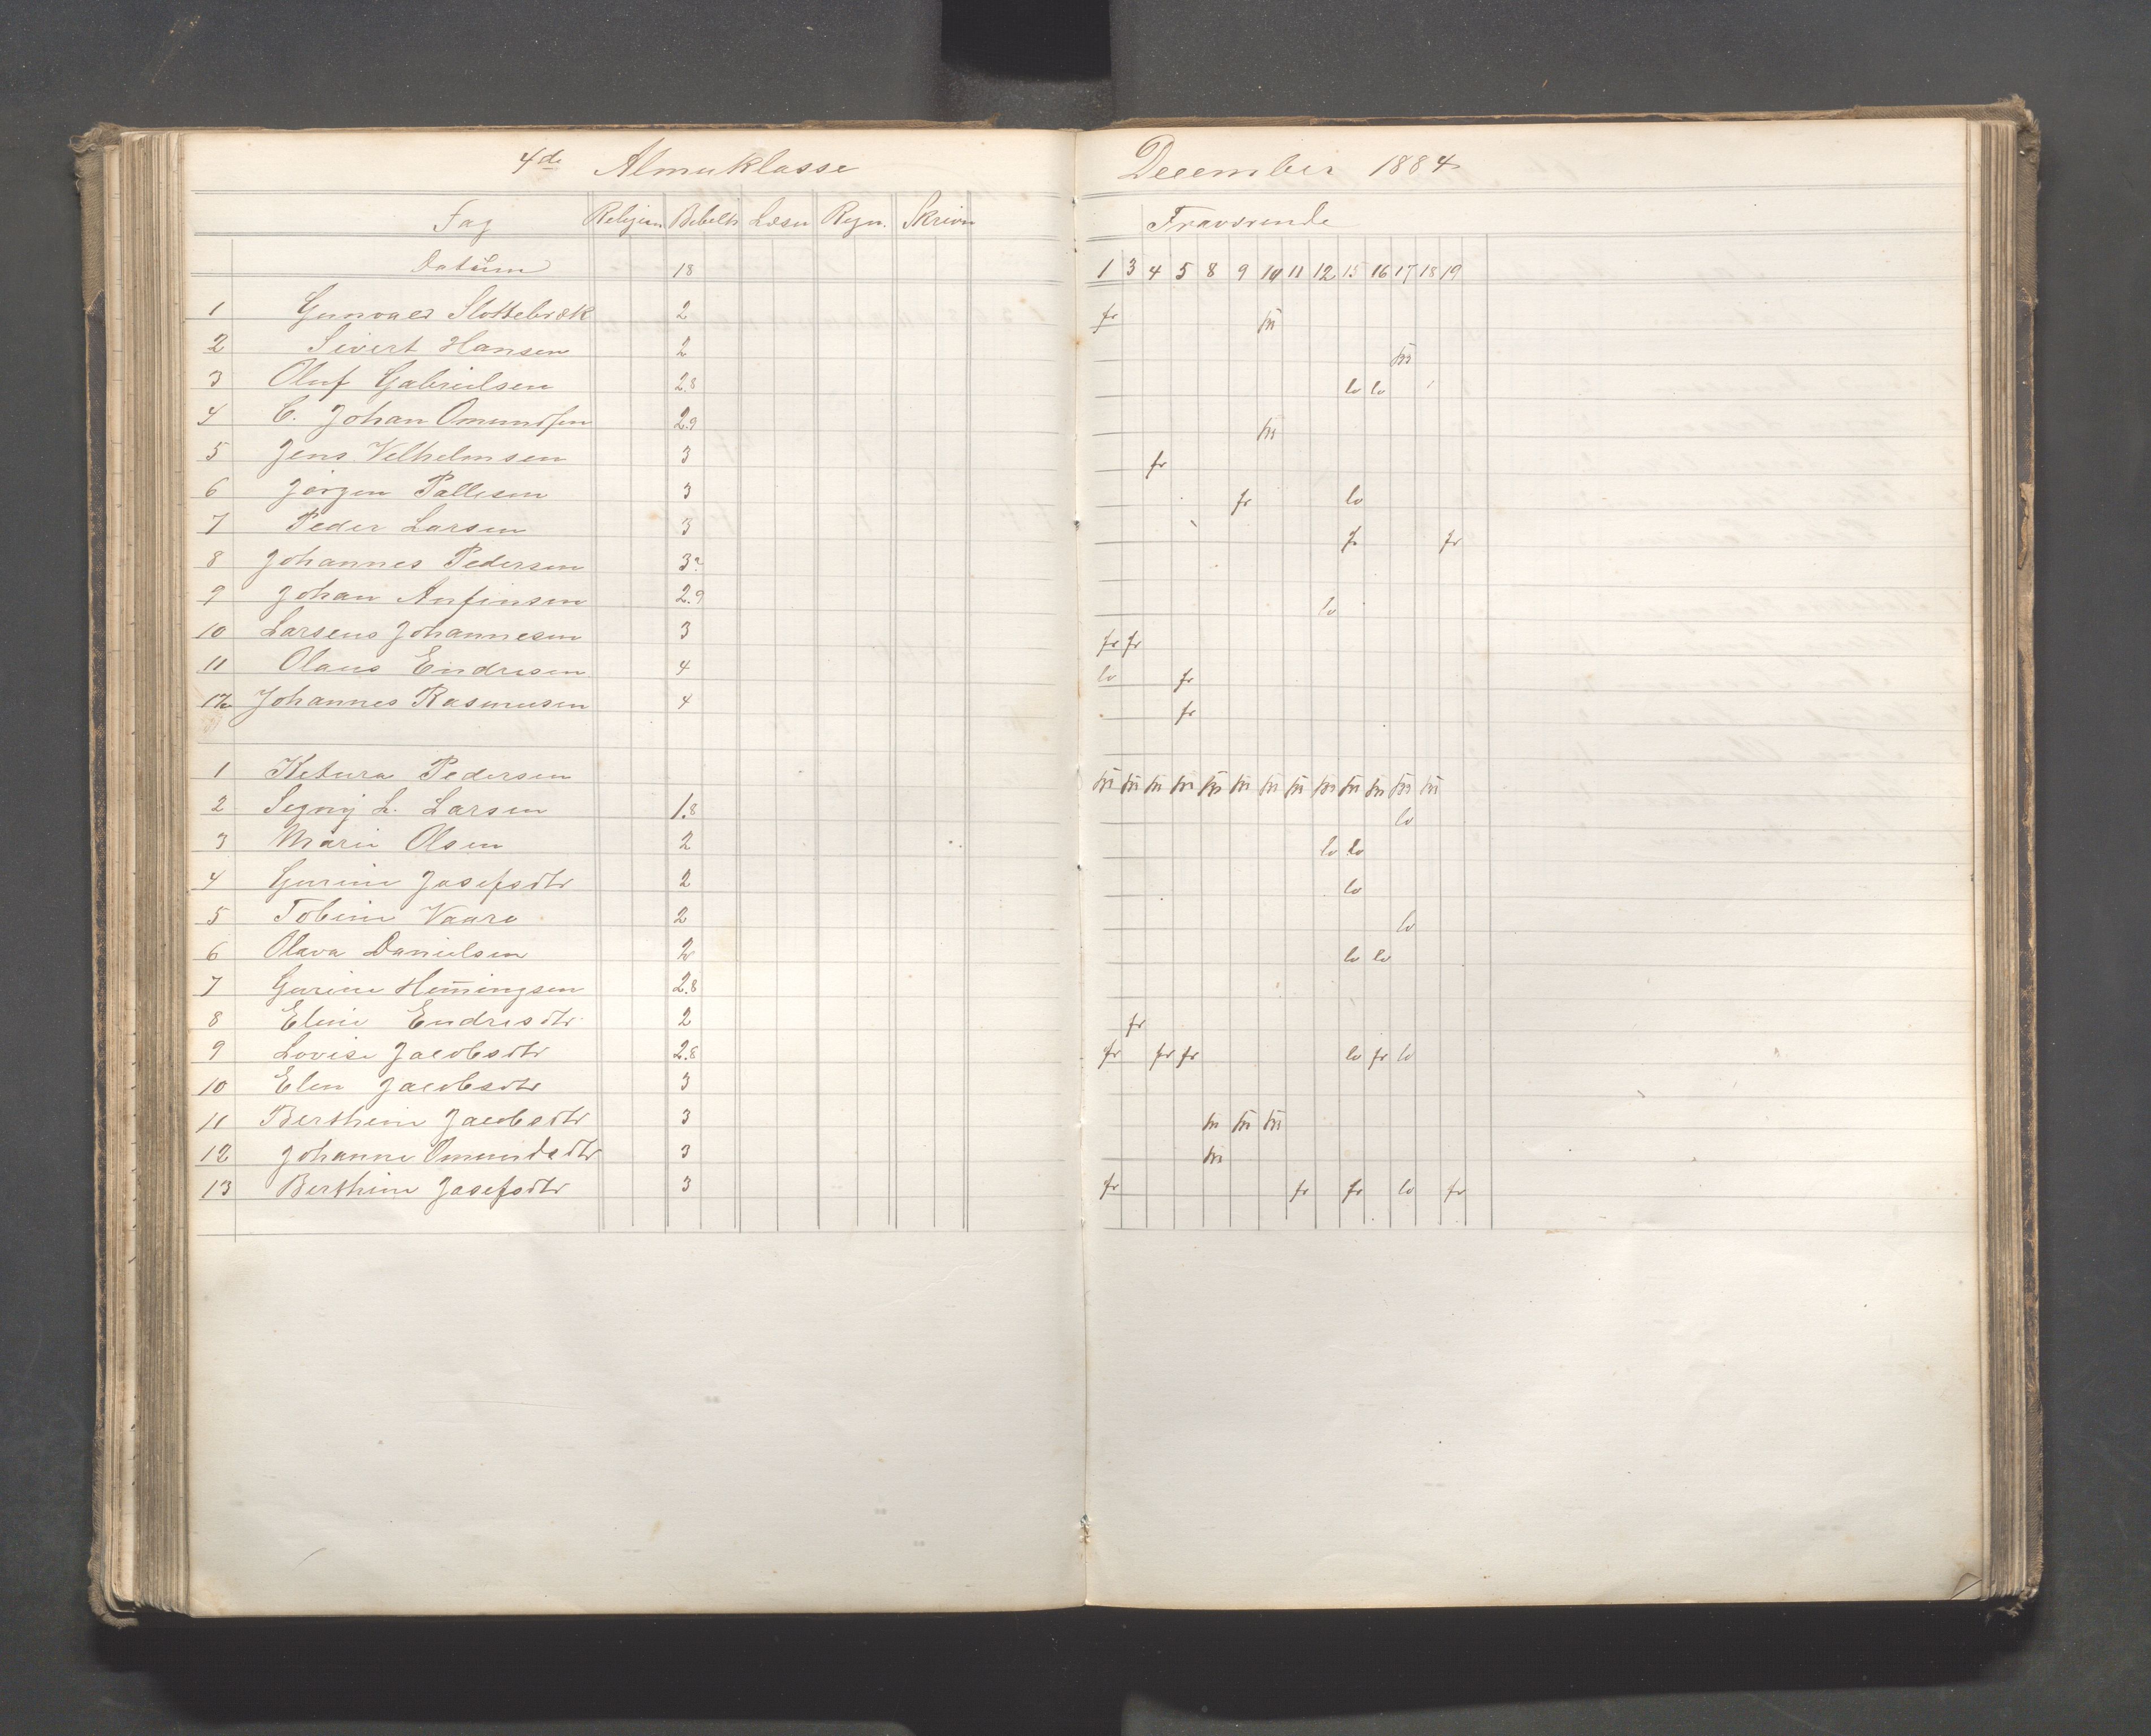 4de Almuklasse
Fag Religion Bibelh Læsn Regn. Skrivn
Datum 18
1 Gunvald Slottebræk 2
2 Sivert Hansen 2
3 Oluf Gabrielsen 2.8
4 C. Johan Omundsen 2.9
5 Jens Velhelmsen 3
6 Jörgen Pallesen 3
7 Peder Larsen 3
8 Johannes Pedersen 3
9 Johan Anfinsen 2.9
10 Larsens Johannesen 3
11 Olaus Endresen 4
12 Johannes Rasmusen 4
1 Ketura Pedersen
2 Segny L. Larsen 1.8
3 Marie Olsen 2
4 Gurine Josefsdtr 2
5 Tobine Vaara 2
6 Olava Danielsen 2
7 Gurine Hem̄ingsen 2.8
8 Eline Endresdtr 2
9 Lovise Jacobsdtr 2.8
10 Elen Jacobsdtr 3
11 Berthine Jacobsdtr 3
12 Johanne Omundsdtr 3
13 Berthine Josefsdtr 3
December 1884
Fraværende
1 3 4 5 8 9 10 11 12 15 16 17 18 19
fr m
m
lo lo
m
fr
fr lo
fr fr
lo
fr fr
lo fr
fr
m m m m m m m m m m m m m
lo
lo lo
lo
lo
lo lo
fr
fr fr fr lo fr lo
m m m
m
fr fr fr lo fr